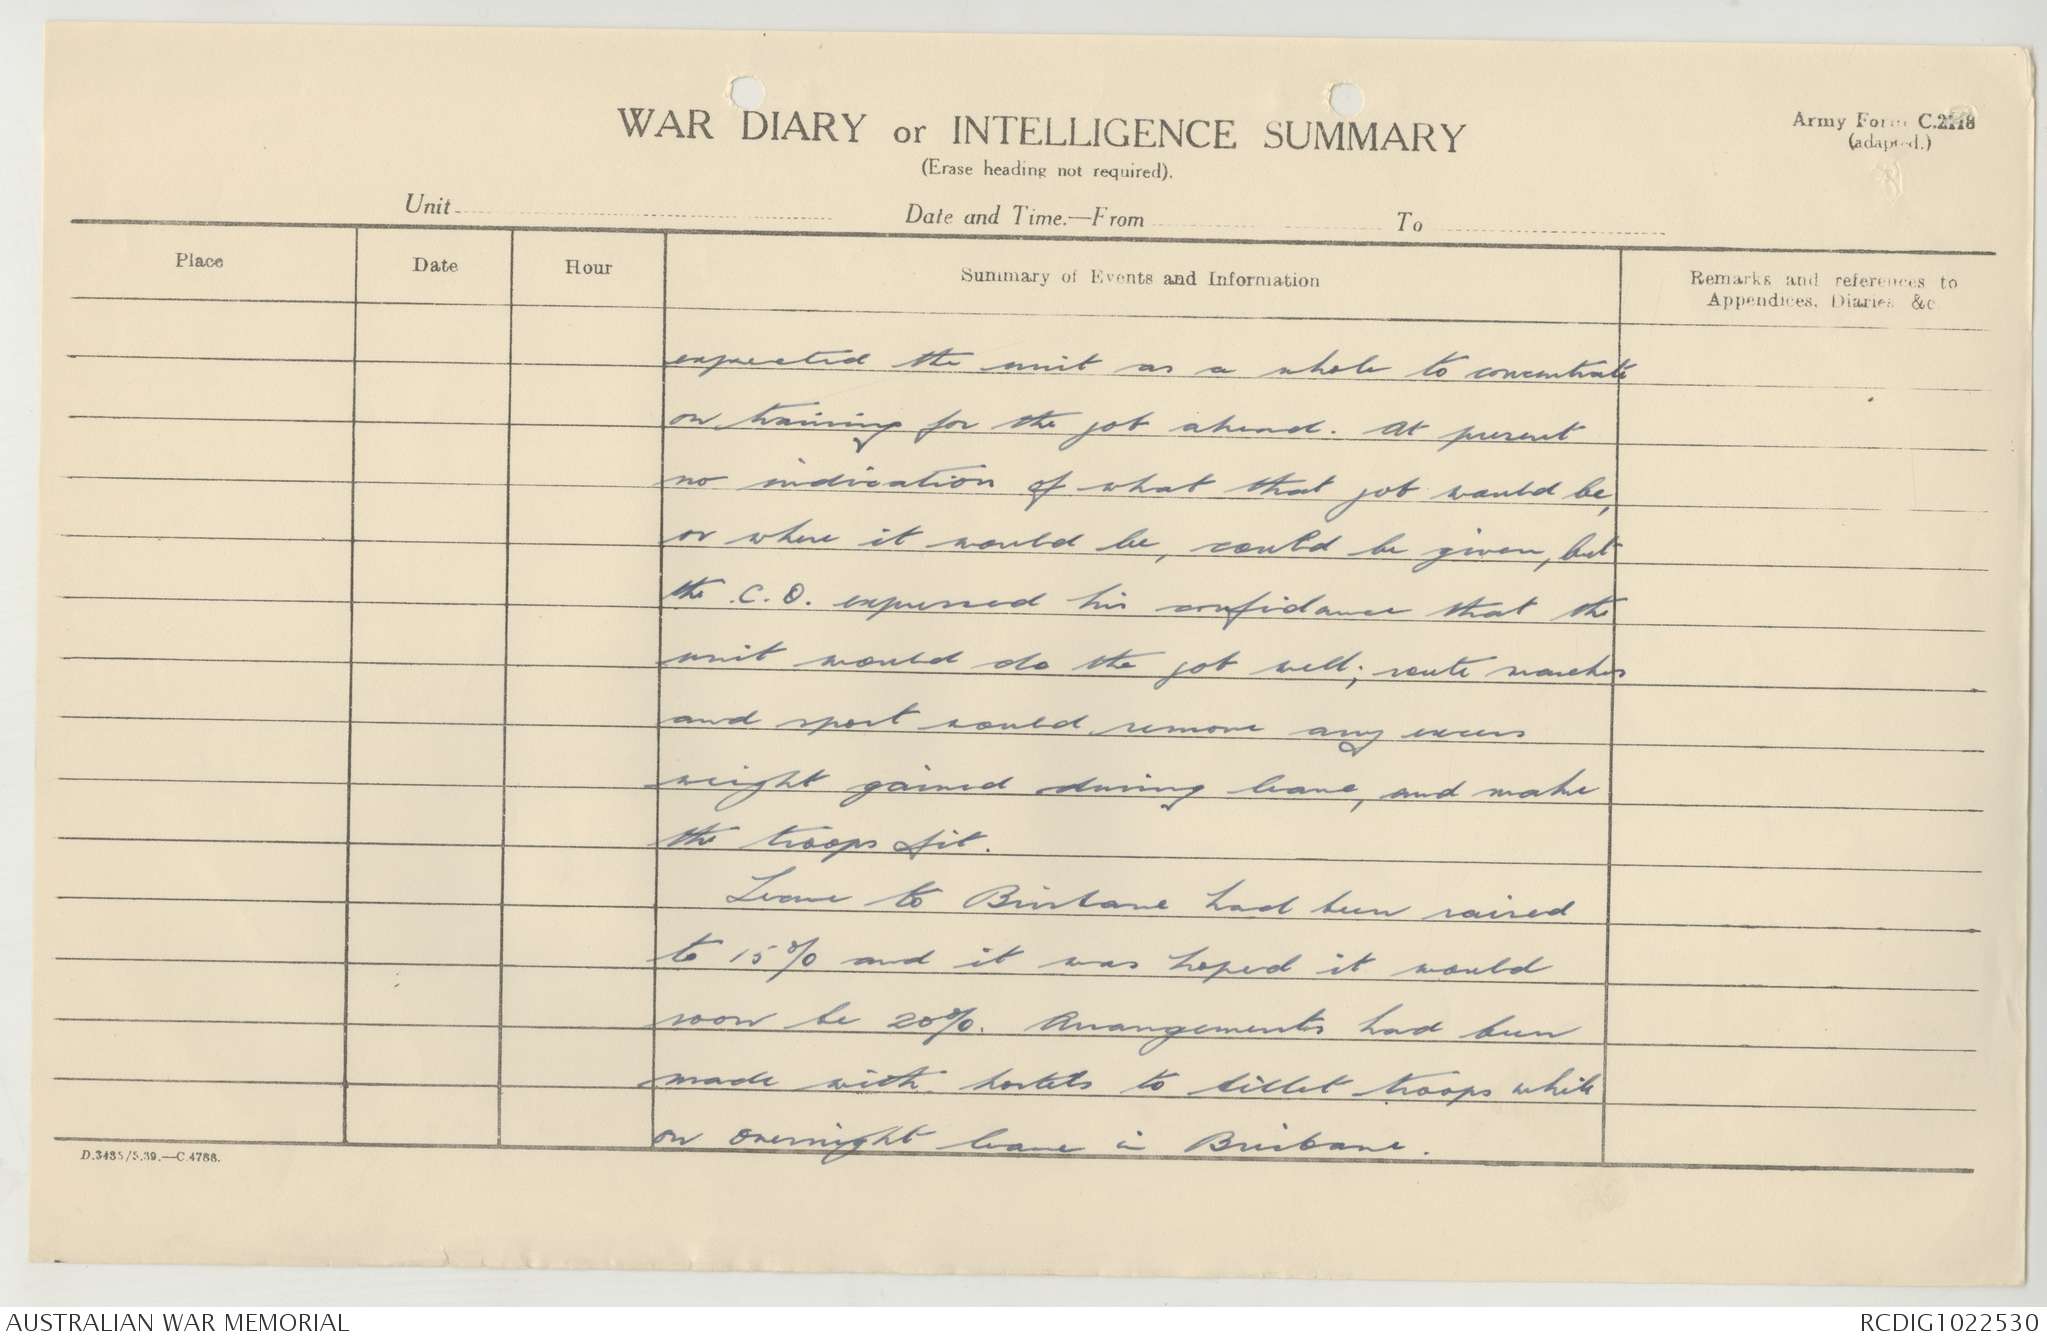 WAR DIARY or INTELLIGENCE SUMMARY
(Erase heading not required).
Army Form C.2118
(adapted.)
Unit
Date and Time.—From
To
Place
Date
Hour
Summary of Events and Information
Remarks and references to
Appendices, Diaries &c.
expected the unit as a whole to concentrate
on training for the job ahead. At present
no indication of what that job would be,
or where it would be, could be given, but
the C.O. expressed his confidance that the
unit would do the job well; route marches
and sport would remove any excess
weight gained during leave, and make
the troops fit.
Leave to Brisbane had been raised
to 15% and it was hoped it would
soon be 20%. Arrangements had been
made with hostels to billet troops while
on overnight leave in Brisbane.
D.3485/5.39.—C.4788.
AUSTRALIAN WAR MEMORIAL
RCDIG1022530